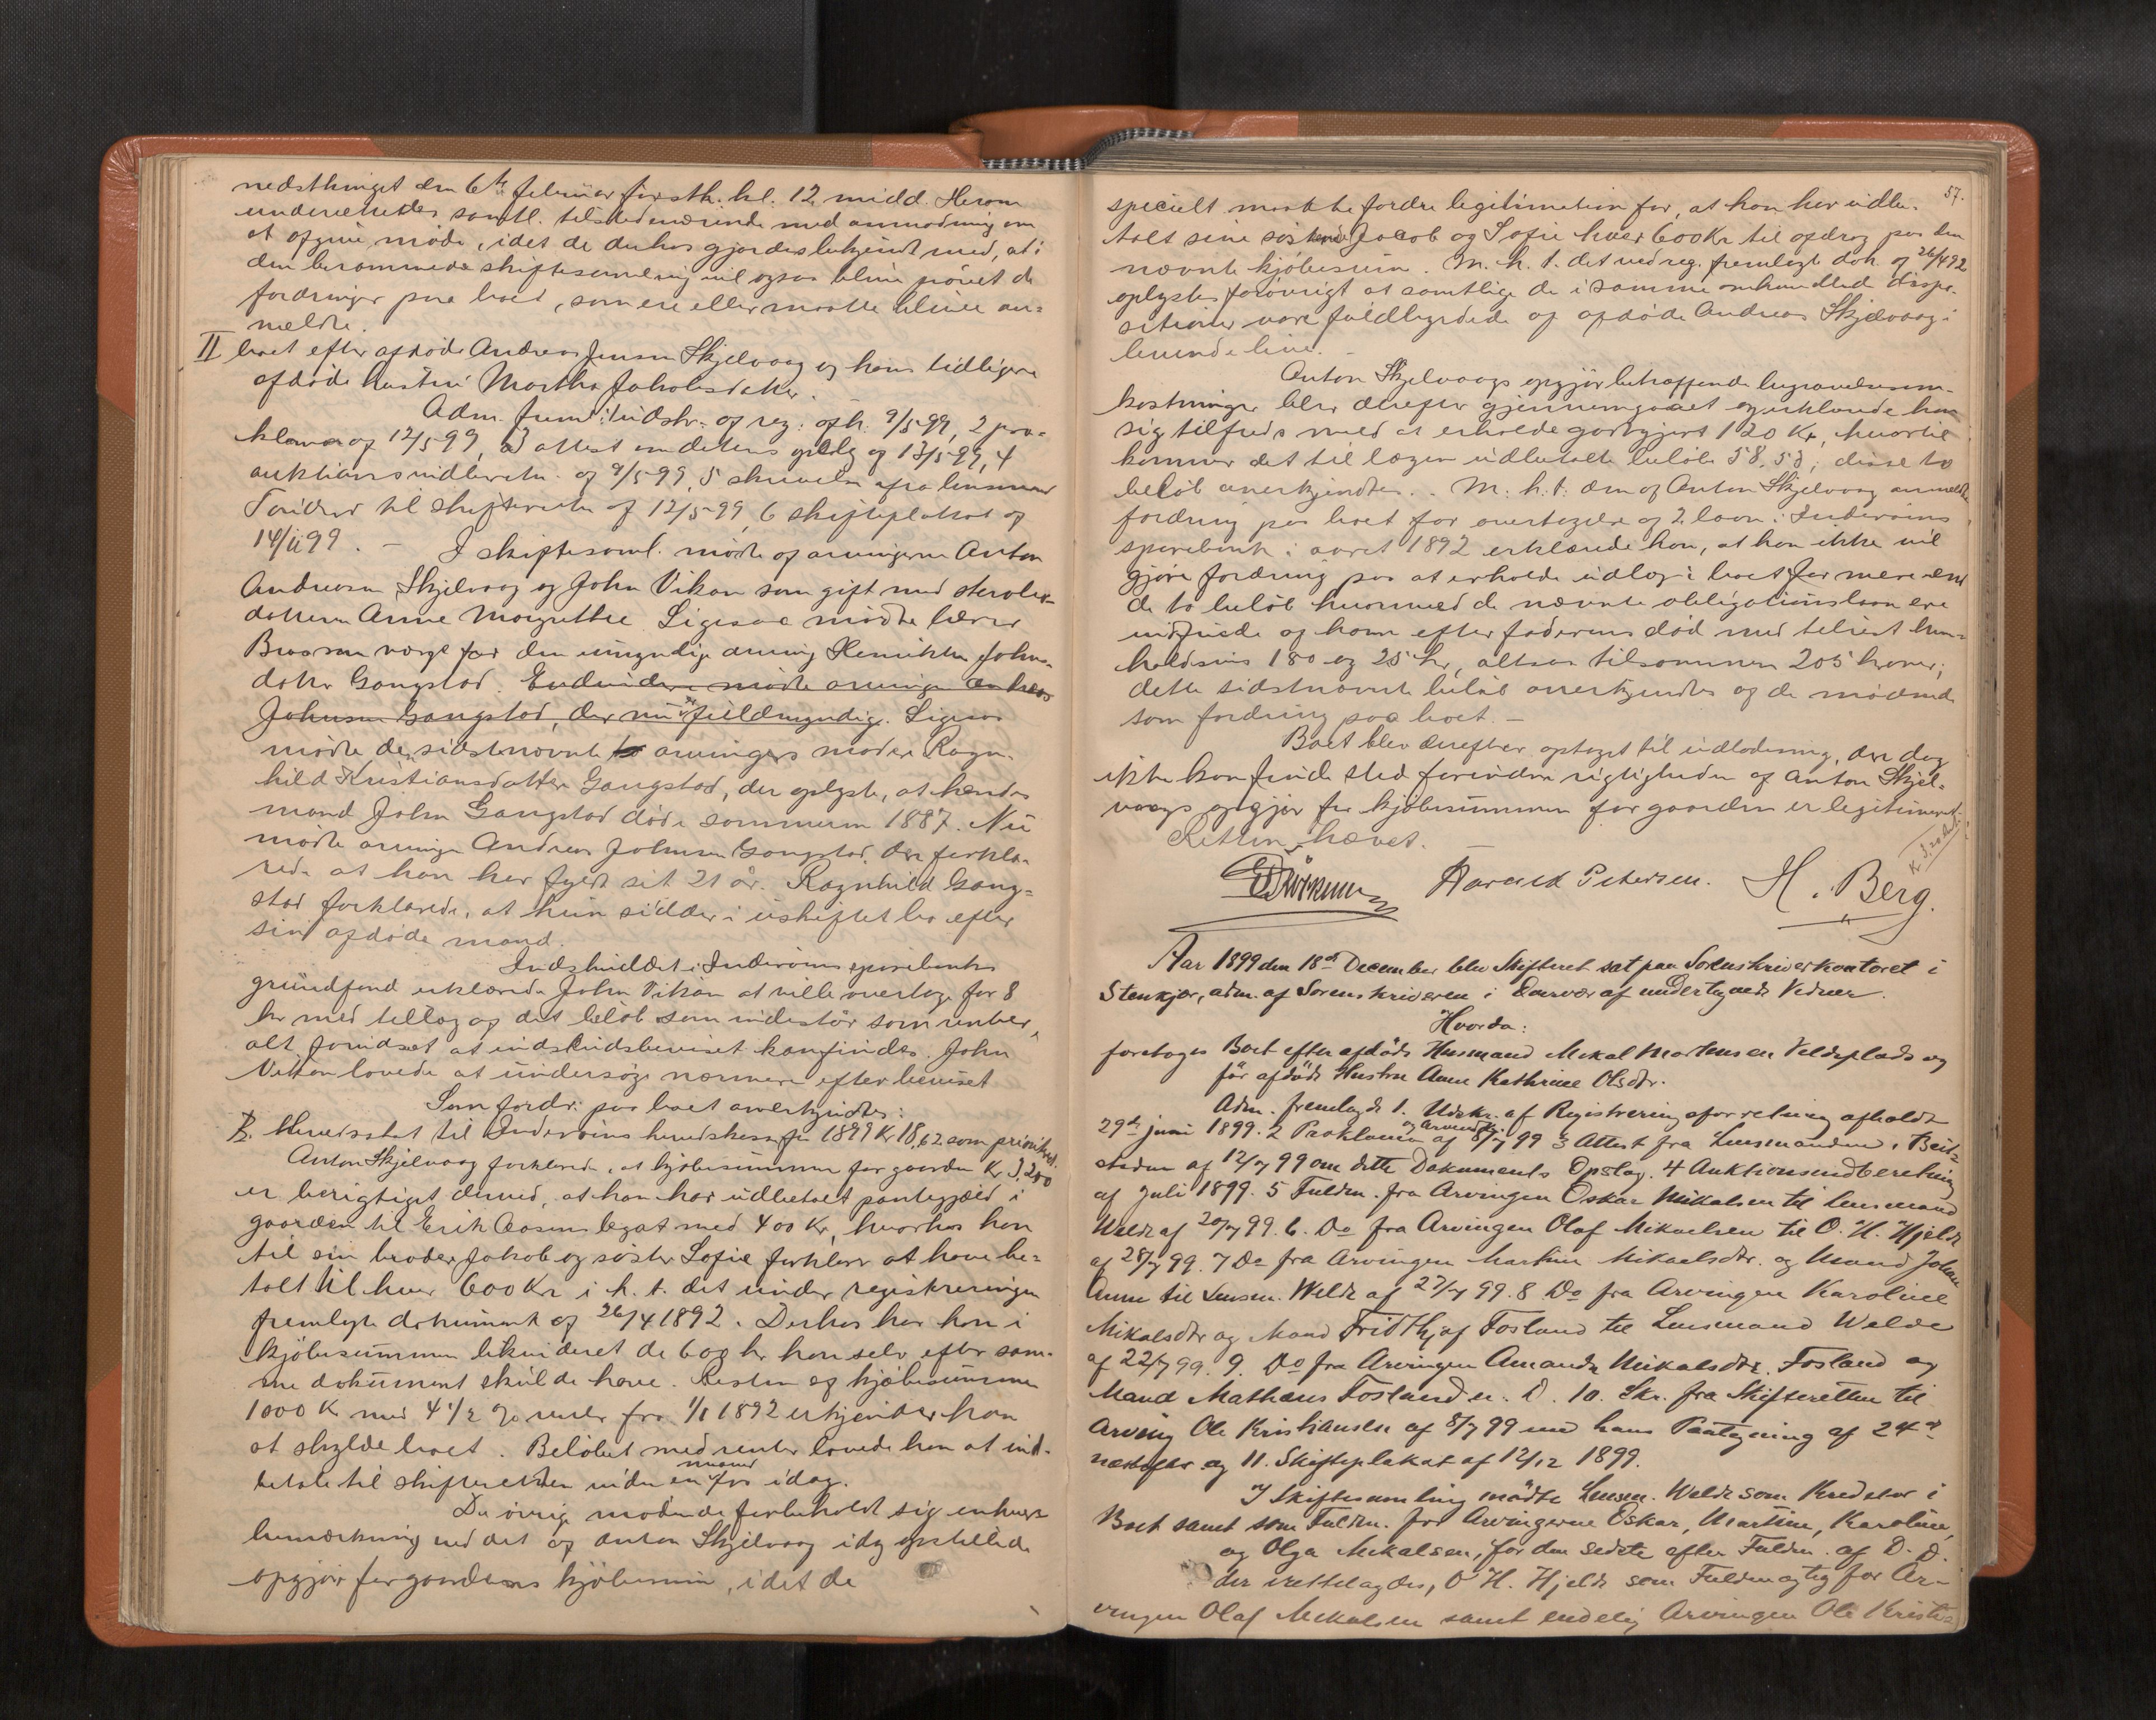 nedsthinget den 6te februar førstk. kl. 12 midd. Herom
underrettedes samtl. tilstedeværende med anmodning om
at afgive møde, idet de derhos gjordes bekjendt med, at i
den berammede skiftesamling vil ogsaa blive prøvet de
fordringer paa boet, som ere eller maatte blive an-
meldte.
II boet efter afdøde Andreas Jensen Skjelvaag og hans tidligere
afdøde hustru Martha Jakobsdatter.
Adm. freml: 1 udskr. af reg: afh. 9/5-99, 2 pro-
klama af 12/5 99, 3 attest om dettens opslag af 13/5-99, 4
auktionsindberetn. af 9/5-99, 5 skrivelse fra lensmand
til skifteretten af 12/5-99, 6 skifteplakat af
14/11 99. - I skiftesaml. mødte af arvingerne Anton
Andreasen Skjelvaag og John Vikan som gift med
datteren Anne Margrethe. Ligesaa mødte lærer
som værge for den umyndige arving Henrikke Johns-
datter Gangstad. Endvidere mødte arvinge Andreas
Johnsen Gangstad, der nu er fuldmyndig. Ligesaa
mødte de sidstnævnte arvingers moder Ragn-
hild Kristiansdatter Gangstad, der oplyste, at hendes
mand John Gangstad døde sommeren 1887. Nu
mødte arvinge Andreas Johnsen Gangstad, der forkla-
rede at han har fyldt sit 21 år. Ragnhild Gang-
stad forklarede, at hun sidder i uskiftet bo efter
sin afdøde mand.
Indskuddet i Inderøens sparebanks
grundfond erklærede John Vikan at ville overtage for 8
kr med tillæg af det beløb som indestår som renter,
alt forudsat at indskudsbeviset kan findes. John
Vikan lovede at undersøge nærmere efter beviset
Som fordr: paa boet anerkjendtes:
Herredsskat til Inderøens herredskasse for 1899 Kr 18,62 som prioriteret.
Anton Skjelvaag forklarede, at kjøbesummen for gaarden Kr. 3,200
er berigtiget derved, at han har udbetalt pantegjæld i
gaarden til Erik Aasens legat med 400 Kr, hvorhos han
til sin broder Jakob og søster Sofie forklarer at have be-
talt til hver 600 Kr i h. t. det under registreringen
fremlagte dokument af 26/4 1892. Derhos har han i
kjøbesummen likvideret de 600 kr han selv efter sam-
me dokument skulde have. Resten af kjøbesummen
1000 Kr med 4 1/2 % rente fra 1/1 1892 erkjender han
at skylde boet. Beløbet med renter lovede han at ind-
betale til skifteretten inden en maaned fra idag.
De øvrige mødende forbeholdt sig enhver
bemærkning ved det af Anton Skjelvaag idag opstillede
opgjør for gaardens kjøbesum, idet de
57.
specielt maatte fordre legitimation for, at han har udbe-
talt sine søskende Jacob og Sofie hver 600 Kr til afdrag paa den
nævnte kjøbesum. M. h. t. det ved reg. fremlagt dok. af 26/4 92
oplystes forøvrigt at samtlige de i samme omhandlede dispo-
sitioner vare fuldbyrdede af afdøde Andreas Skjelvaag i
levende live. -
Anton Skjelvaags opgjør betræffende begravelsesom-
kostninger blev derefter gjennemgaaet og erklærede han
sig tilfreds med at erholde godtgjort 120 Kr, hvortil
kommer det til lægen udbetalte beløb 58,53; disse to
beløb anerkjendtes. M. h. t. den af Anton Skjelvaag anmeldte
fordring paa boet for overtagelse af 2 laan i Inderøens
sparebank i aaret 1892 erklærede han, at han ikke vil
gjøre fordring paa at erholde udlæg i boet for mere end
de to beløb hvormed de nævnte obligationslaan ere
indfriede af ham efter faderens død med
180 og 25 kr, altsaa tilsammen 205 kroner;
dette sidstnævnte beløb anerkjendtes af de mødende
som fordring paa boet. -
Boet blev derefter optaget til udlodning, der dog
ikke kan finde sted forinden rigtigheden af Anton Skjel-
vaags opgjør for kjøbesummen for gaarden er legitimeret.
Retten hævet.
Harald Petersen. H. Berg.
Aar 1899 den 18de December blev Skifteret sat paa Sorenskriverkontoret i
Stenkjær, adm. af Sorenskriveren i Overvær af undertegnede Vidner.
Hvorda:
foretoges Boet efter afdøde Husmand Mikal Martensen Veldeplads og
før afdøde Hustru Anne Kathrine Olsdtr.
Adm. fremlagde 1. Udskr. af Registreringsforretning afholdt
29de juni 1899. 2 Proklama af 8/7 99 3 Attest fra Lensmanden i Beit-
staden af 12/7 99 om dette Dokuments Opslag. 4 Auktionsindberetning
af Juli 1899. 5 Fuldm. fra Arvingen Oskar Mikalsen til Lensmand
Welde af 20/7 99. 6. Do fra Arvingen Olaf Mikaelsen til O. H. Hjelde
af 28/7 99. 7 Do fra Arvingen Martine Mikaelsdtr. og Mand Johan
til Lensm. Welde af 27/7 99. 8 Do fra Arvingen Karoline
Mikalsdtr og Mand Fridthjof Fosland til Lensmand Welde
af 22/7 99. 9. Do fra Arvingen Amanda Mikalsdtr. Fosland og
Mand Mathæus Fosland u. D. 10. Skr. fra Skifteretten til
Arving Ole Kristiansen af 8/7 99 med hans Paategning af 24de
næstefter og 11. Skifteplakat af 12/12 1899.
I Skiftesamling mødte Lensm. Welde som Kreditor i
Boet samt som Fuldm. for Arvingerne Oskar, Martine, Karoline,
og Olga Mikalsen, for den sidste efter Fuldm. af D. D.
der irettelagdes, O H. Hjelde som Fuldmægtig for Ar-
vingen Olaf Mikalsen samt endelig Arvingen Ole Kristi-